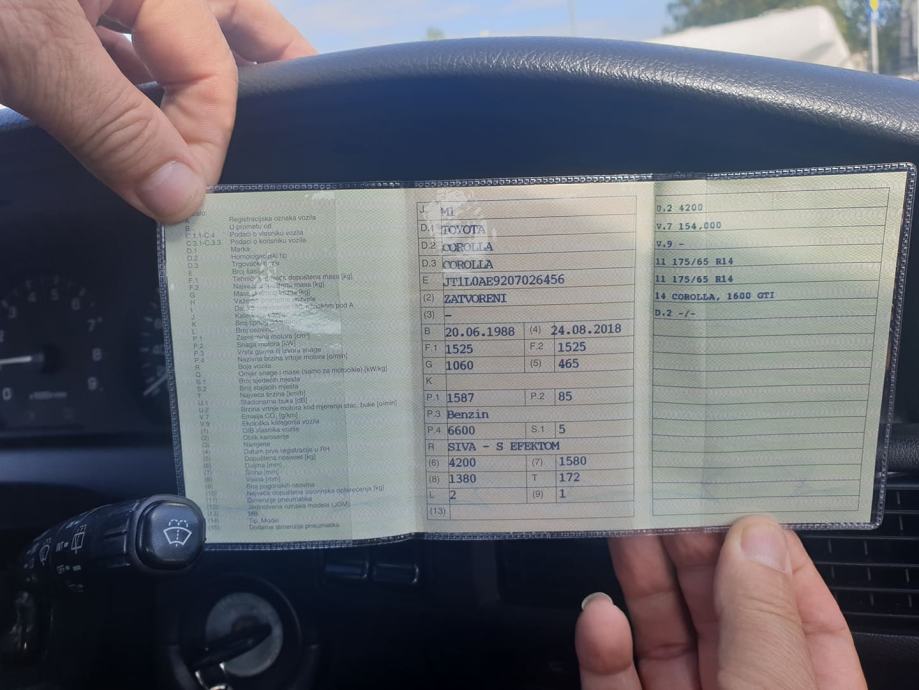 Registracijska oznaka vozila
B U prometu od
C.1.1-C.4 Podaci o vlasniku vozila
C.3.1-C.3.3 Podaci o korisniku vozila
D.1 Marka
D.2 Homologacijski tip
D.3
E
F.1 dopuštena masa [kg]
F.2 masa [kg]
G
H
I
J
K
L
P.1 motora
P.2 Snaga motora [kW]
P.3 Vrsta goriva ili izvora snage
P.4 Nazivna brzina vrtnje motora [o/min]
R Boja vozila
Q Omjer snage i mase (samo za motocikle) [kW/kg]
S.1 Broj sjedećih mjesta
S.2 Broj stajaćih mjesta
T Najveća brzina [km/h]
U.1 Stacionarna buka [dB]
U.2 Brzina vrtnje motora kod mjerenja stac. buke [o/min]
V.7 Emisija CO₂ [g/km]
V.9 Ekološka kategorija vozila
(1) OIB vlasnika vozila
(2) Oblik karoserije
(3) Namjena
(4) Datum prve registracije u RH
(5) Dopuštena nosivost [kg]
(6) Duljina [mm]
(7) Širina [mm]
(8) Visina [mm]
(9) Broj pogonskih osovina
(10) Najveće dopušteno osovinsko opterećenje [kg]
(11) Dimenzije pneumatika
(12) Jednotvorna oznaka modela
(13) MB
(14) Tip, Model
(15) Dodatne dimenzije pneumatika
J M1
D.1 TOYOTA
D.2 COROLLA
D.3 COROLLA
E JT1L0AE9207026456
(2) ZATVORENI
(3) –
B 20.06.1988 (4) 24.08.2018
F.1 1525 F.2 1525
G 1060 (5) 465
K
P.1 1587 P.2 85
P.3 Benzin
P.4 6600 S.1 5
R SIVA - S EFEKTOM
(6) 4200 (7) 1580
(8) 1380 T 172
L 2 (9) 1
(13)
D.2 4200
V.7 154,000
V.9 -
11 175/65 R14
11 175/65 R14
14 COROLLA, 1600 GTI
D.2 -/-
7
8
9